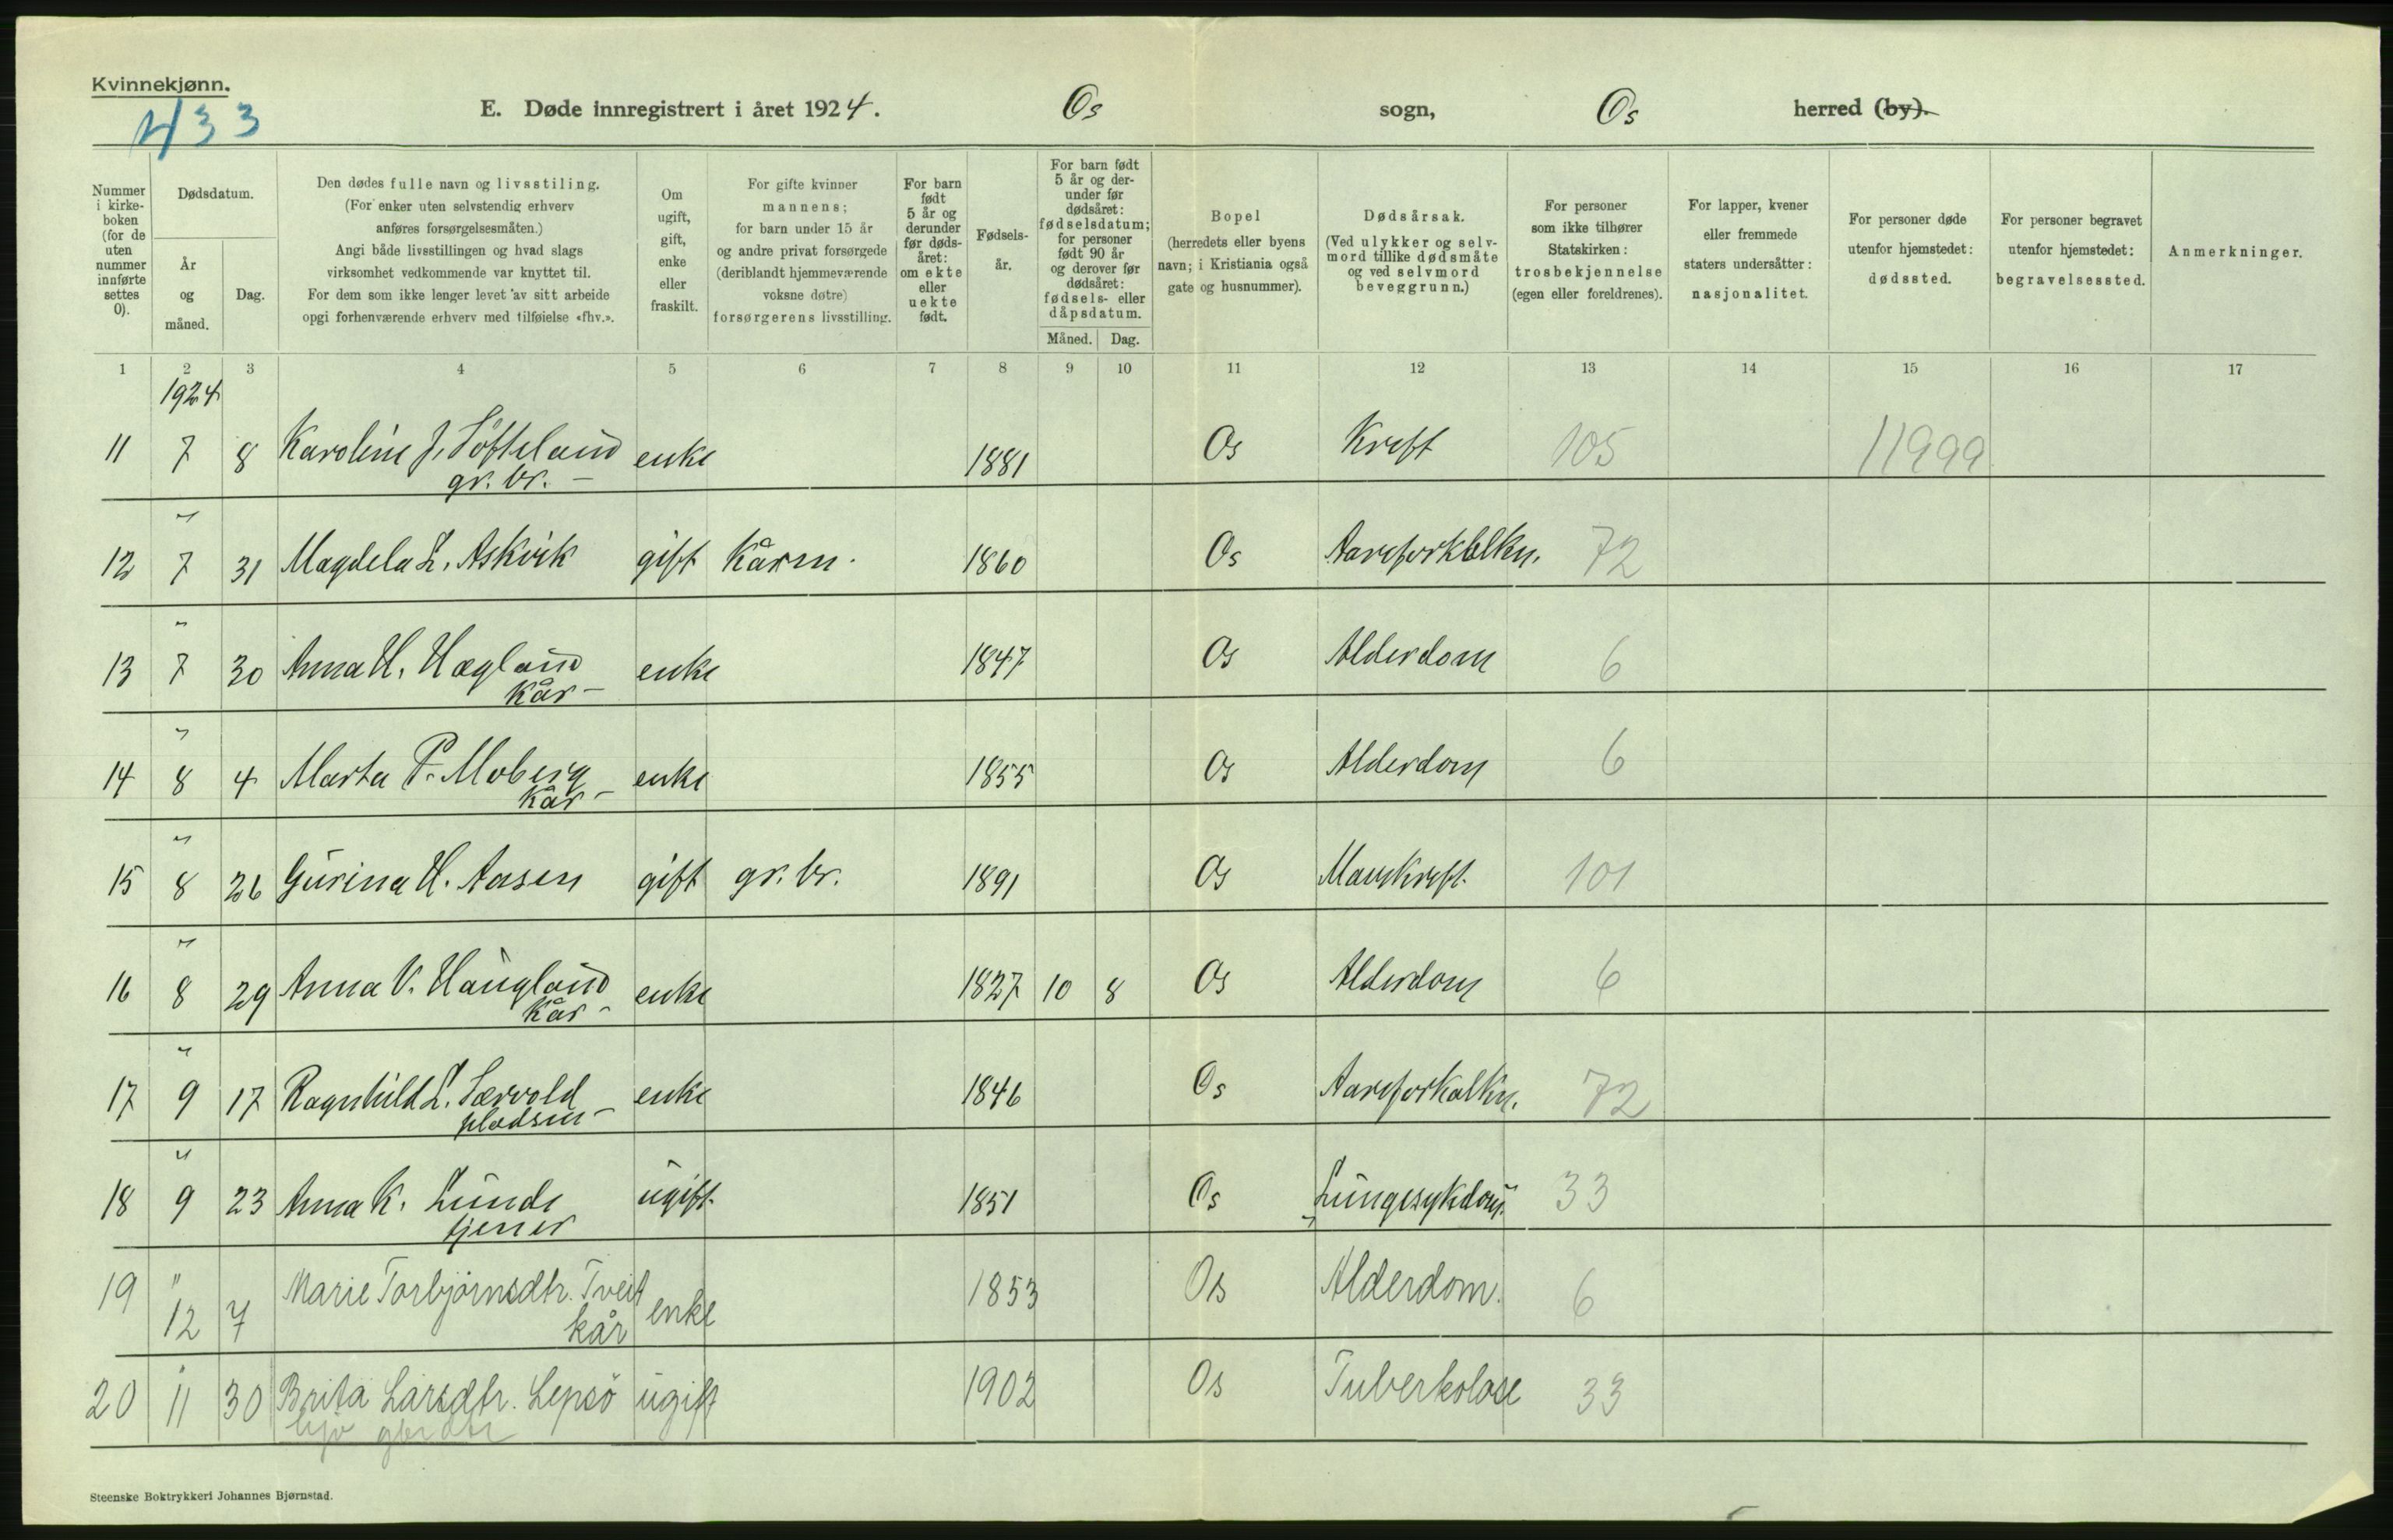 Kvinnekjønn.
433
E. Døde innregistrert i året 1924. Os sogn, Os herred (by).
Nummer i kirkeboken (for de uten nummer innførte settes 0).
Dødsdatum.
År og måned.
Dag.
Den dødes fulle navn og livsstiling.
(For enker uten selvstendig erhverv
anføres forsørgelsesmåten.)
Angi både livsstillingen og hvad slags
virksomhet vedkommende var knyttet til.
For dem som ikke lenger levet av sitt arbeide
opgi forhenværende erhverv med tilføielse «fhv.».
Om
ugift,
gift,
enke
eller
fraskilt.
For gifte kvinner
mannens;
for barn under 15 år
og andre privat forsørgede
(deriblandt hjemmeværende
voksne døtre)
forsørgerens livsstilling.
For barn
født
5 år og
derunder
før døds-
året:
om ekte
eller
uekte
født.
Fødsels-
år.
For barn født
5 år og der-
under før
dødsåret:
fødselsdatum;
for personer
født 90 år
og derover før
dødsåret:
fødsels- eller
dåpsdatum.
Måned. Dag.
Bopel
(herredets eller byens
navn; i Kristiania også
gate og husnummer).
Dødsårsak.
(Ved ulykker og selv-
mord tillike dødsmåte
og ved selvmord
beveggrunn.)
For personer
som ikke tilhører
Statskirken:
trosbekjennelse
(egen eller foreldrenes).
For lapper, kvener
eller fremmede
staters undersåtter:
nasjonalitet.
For personer døde
utenfor hjemstedet:
dødssted.
For personer begravet
utenfor hjemstedet:
begravelsessted.
Anmerkninger.
1 2 3 4 5 6 7 8 9 10 11 12 13 14 15 16 17
1924
11 7 8 Karoline J. Söfteland enke 1881 Os Kreft 105 11999
gr. br. –
"
12 7 31 Magdela L. Askvik gift Kårm. 1860 Os Aareforkblkn. 72
"
13 7 30 Anna H. Hegland enke 1847 Os Alderdom 6
Kår –
"
14 8 4 Marta P. Moberg enke 1855 Os Alderdom 6
Kår –
"
15 8 26 Gurina H. Aasen gift gr. br. 1891 Os Mavekreft. 101
"
16 8 29 Anna V. Haugland enke 1827 10 8 Os Alderdom 6
Kår –
"
17 9 17 Ragnhild L. Særvold enke 1846 Os Aareforkalkn. 72
pladsm –
"
18 9 23 Anna K. Lunde ugift 1851 Os Lungesykdom. 33
tjener
19 " 12 7 Marie Torbjörnsdtr. Tveit enke 1853 Os Alderdom. 6
kår
"
20 11 30 Brita Larsdtr. Lepsö ugift 1902 Os Tuberkolose 33
gbrdtr
Steenske Boktrykkeri Johannes Bjørnstad.